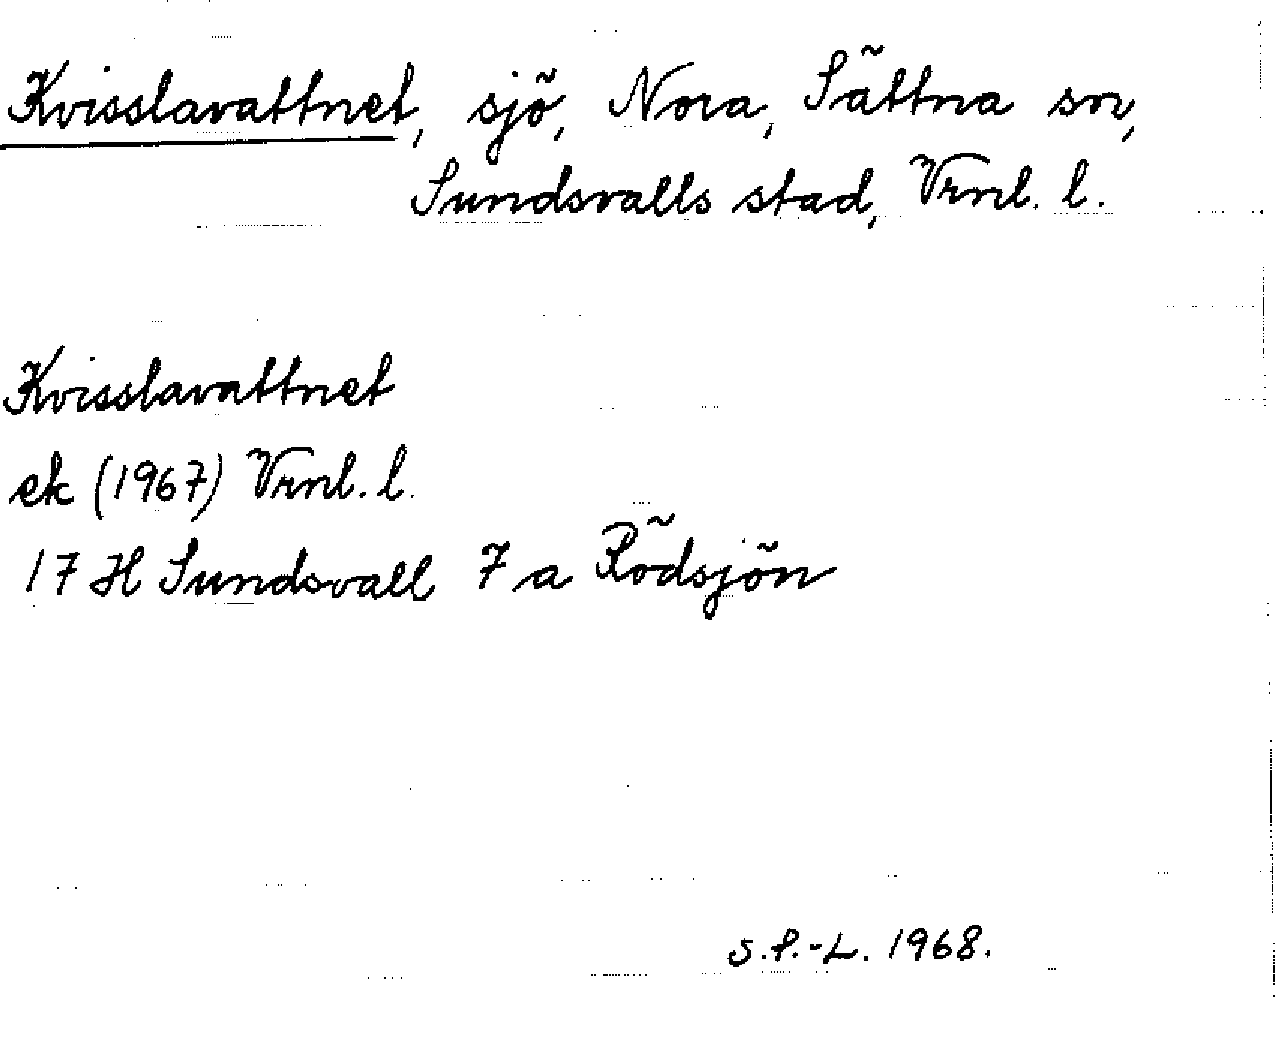 Kvisslavattnet, sjö, Nora, Sättna sn,
Sundsvalls stad, Vrnl. l.
Kvisslavattnet
ek (1967) Vrnl. l.
17 H Sundsvall 7 a Rödsjön
S.P.-L. 1968.